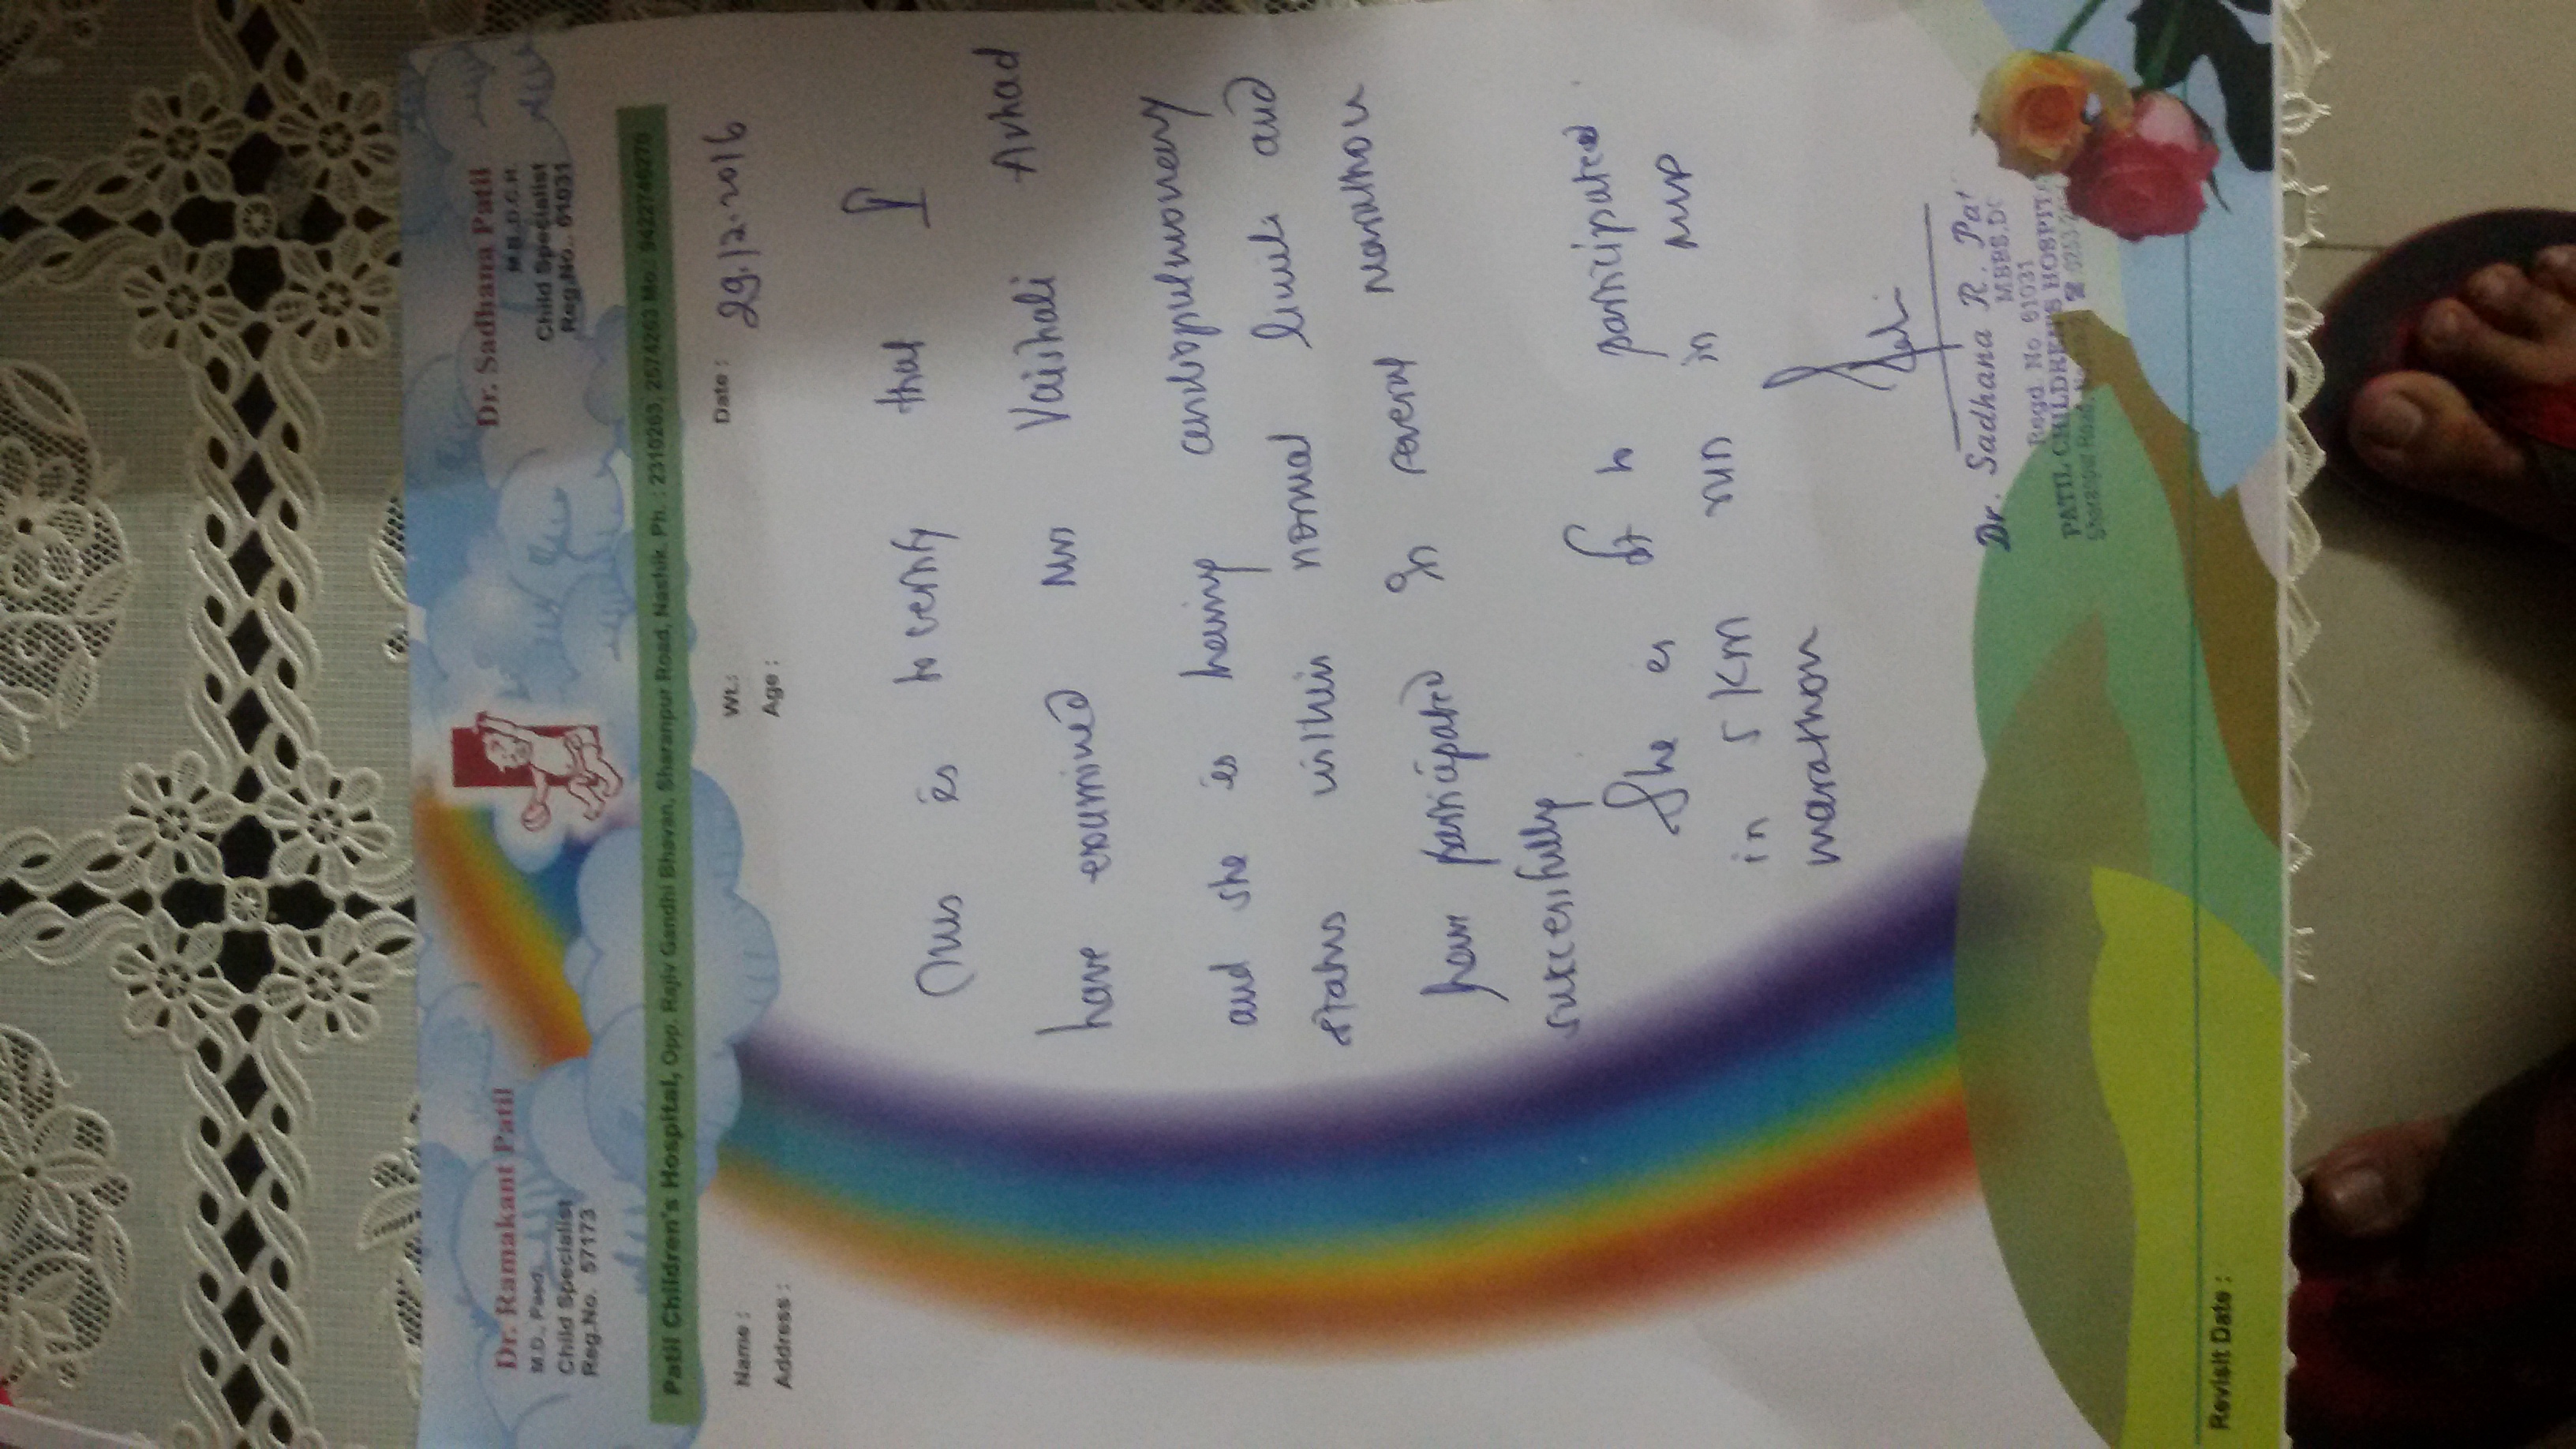 Dr. Ramakant Patil
M.D., Paed.
Child Specialist
Reg.No. 57173
Dr. Sadhana Patil
M.B.,D.C.H.
Child Specialist
Reg.No.. 61031
Patil Children's Hospital, Opp. Rajiv Gandhi Bhavan, Sharanpur Road, Nashik. Ph. : 2310263, 2574263 Mo.: 9422746270
Name :
Wt.:
Date : 29.12.2016
Address :
Age :
This is to certify that I
have examined Mrs Vaishali Avhad
and she is having cardiopulmonary
status within normal limits and
have participated in several marathon
successfully
She is fit to participated
in 5 Km run in MVP
marathon
Dr. Sadhana R. Pat
MBBS.DC
Regd. No. 61031
PATIL CHILDREN'S HOSPIT
Sharanpur Road,
Revisit Date :